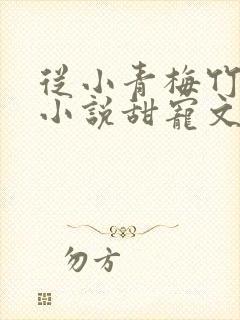 從小青梅竹
小說甜寵文
勿方